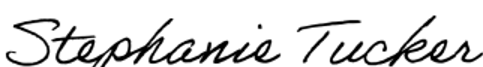 Stephanie Tucker